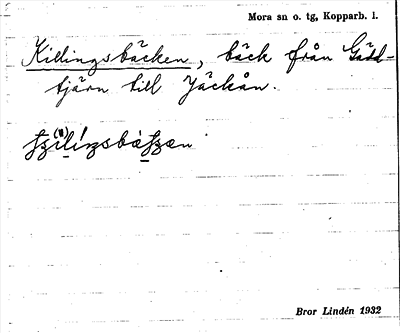 Mora sn o. tg, Kopparb. l.
Killingsbäcken, bäck från Gädd-
tjärn till Jäckån.
Bror Lindén 1932